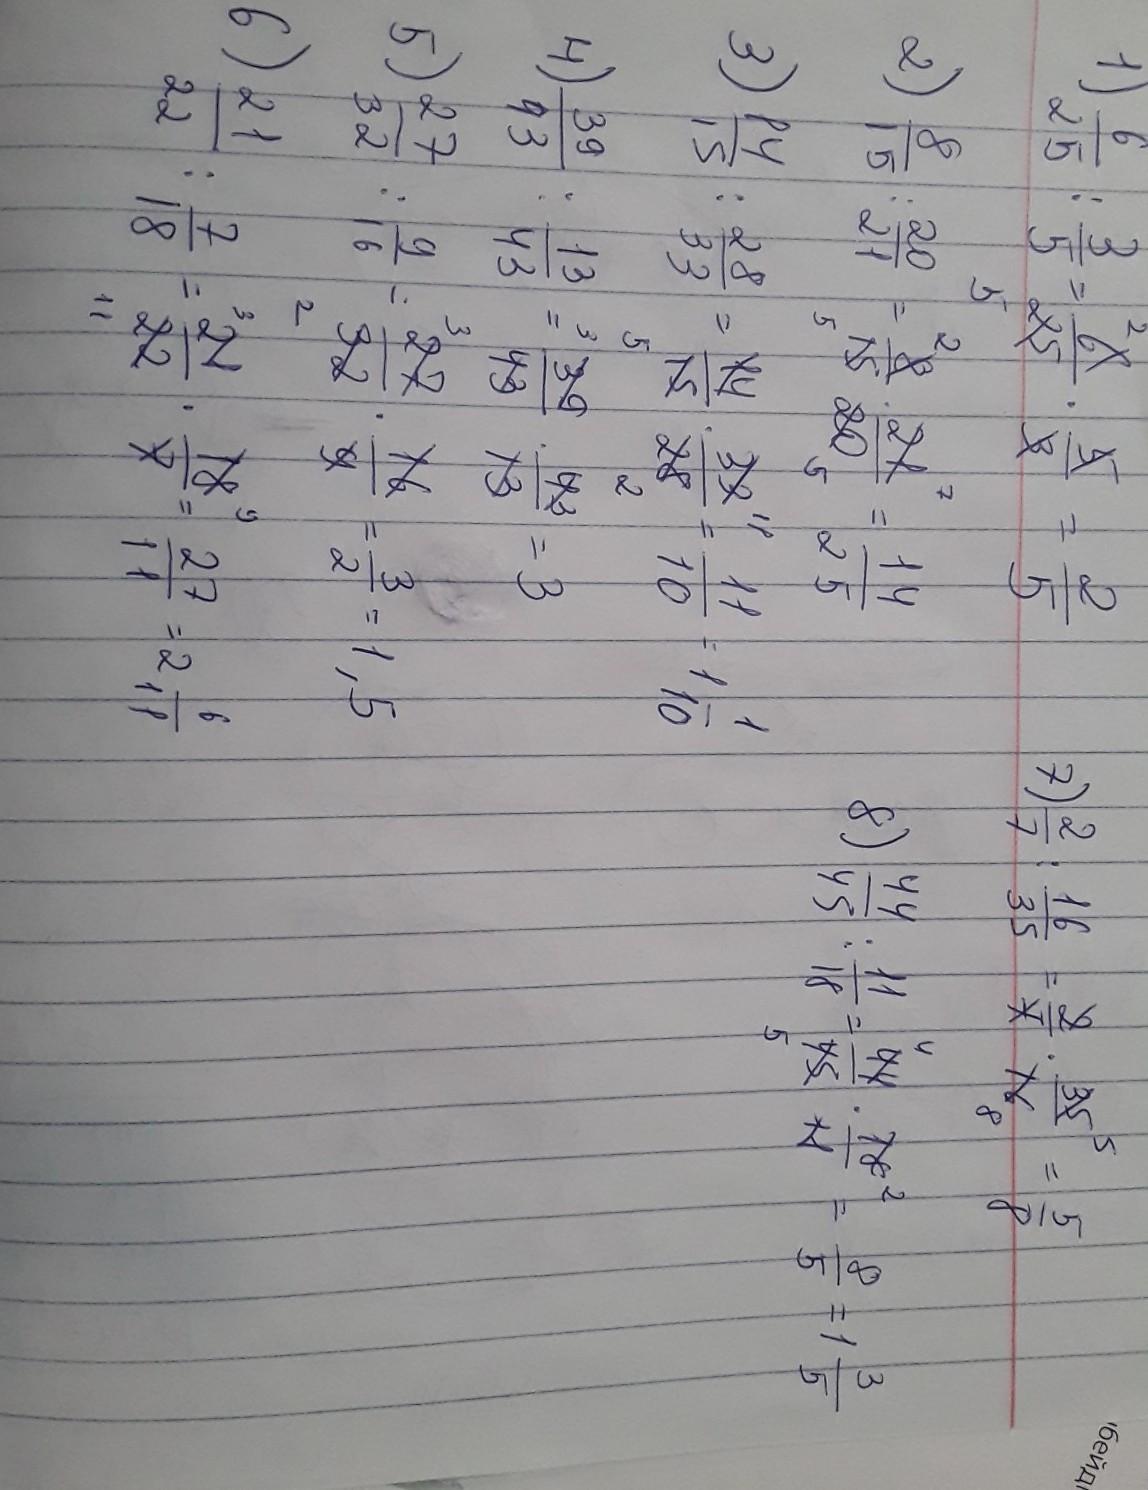 1) 6/25 : 3/5 = 6/25 · 5/3 = 2/5
2) 8/15 : 20/21 = 8/15 · 21/20 = 14/25
3) 14/15 : 28/33 = 14/15 · 33/28 = 11/10 = 1 1/10
4) 39/43 : 13/43 = 39/43 · 43/13 = 3
5) 27/32 : 9/16 = 27/32 · 16/9 = 3/2 = 1,5
6) 21/22 : 7/18 = 21/22 · 18/7 = 27/11 = 2 6/11
7) 2/7 : 16/35 = 2/7 · 35/16 = 5/8
8) 44/45 : 11/18 = 44/45 · 18/11 = 8/5 = 1 3/5